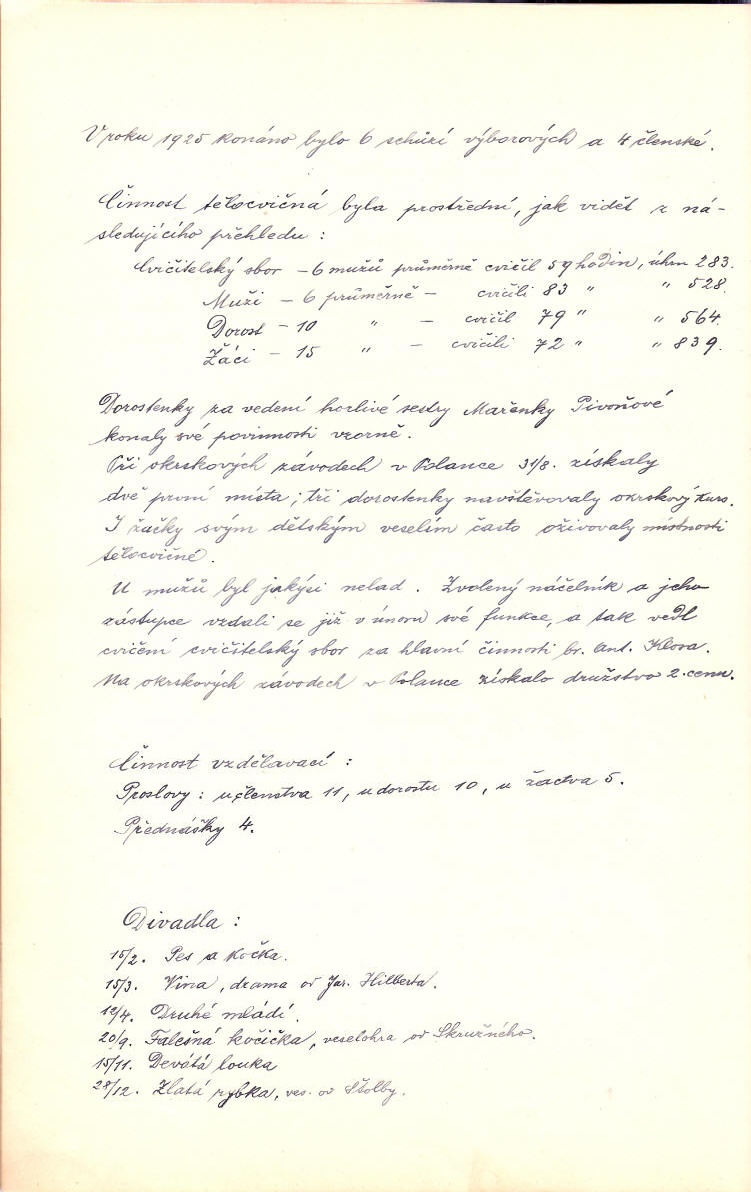 V roku 1925 konáno bylo 6 schůzí výborových a 4 členské.
Činnost tělocvičná byla prostřední, jak vidět z ná-
sledujícího přehledu :
Cvičitelský sbor – 6 mužů průměrně cvičil 59 hodin, úhrn 283.
Muži – 6 průměrně – cvičili 83 " " 528.
Dorost – 10 " – cvičil 79 " " 564.
Žáci – 15 " – cvičili 72 " " 839.
Dorostenky za vedení horlivé sestry Mařenky Pivoňové
konaly své povinnosti vzorně.
Při okrskových závodech v Polance 31/8. získaly
dvě první místa; tři dorostenky navštěvovaly okrskový kurs.
I žačky svým dětským veselím často oživovaly místnosti
tělocvičné.
U mužů byl jakýsi nelad. Zvolený náčelník a jeho
zástupce vzdali se již v únoru své funkce, a tak vedl
cvičení cvičitelský sbor za hlavní činnosti br. Ant. Klosa.
Na okrskových závodech v Polance získalo družstvo 2. cenu.
Činnost vzdělavací :
Proslovy : u členstva 11, u dorostu 10, u žactva 5.
Přednášky 4.
Divadla :
15/2. Pes a kočka.
15/3. Vina, drama od Jar. Hilberta.
12/4. Druhé mládí.
20/9. Falešná kočička, veselohra od Skružného.
15/11. Devátá louka
28/12. Zlatá rybka, ves. od Štolby.